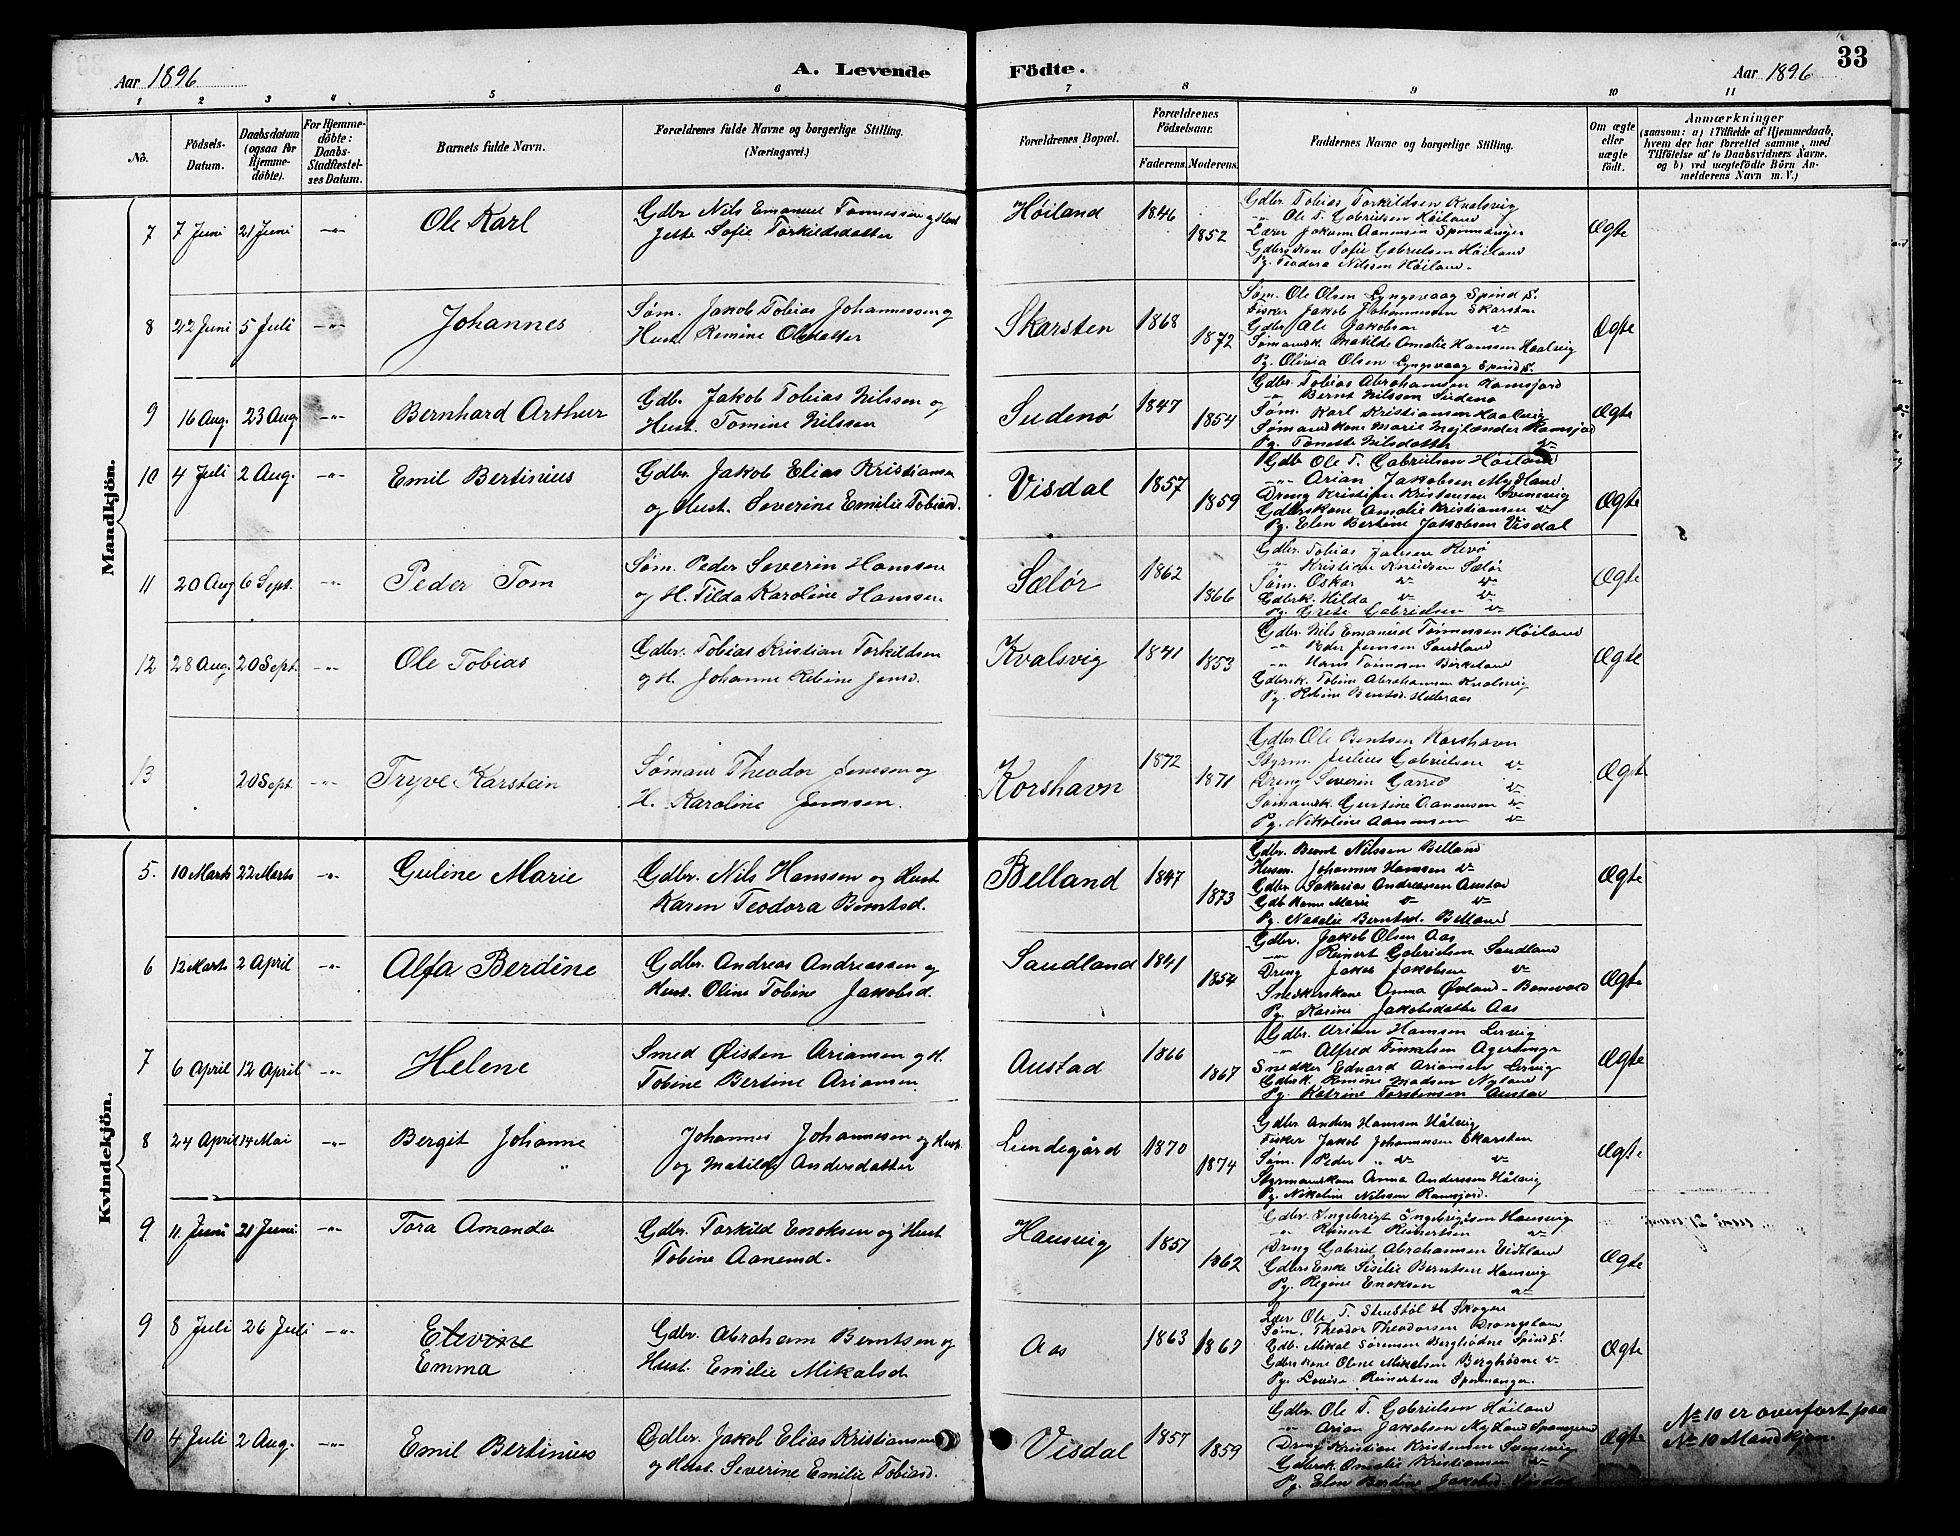 33
Aar 1896
A. Levende
Födte.
Aar 1896
1 2 3 4 5 6 7 8 9 10 11
No.
Födsels-
Datum.
Daabsdatum
(ogsaa for
Hjemme-
döbte).
For Hjemme-
döbte:
Daabs-
Stadfæstel-
ses Datum.
Barnets fulde Navn.
Forældrenes fulde Navne og borgerlige Stilling.
(Næringsvei.)
Forældrenes Bopæl.
Forældrenes
Födselsaar.
Faderens.
Moderens.
Faddernes Navne og borgerlige Stilling.
Om ægte
eller
uægte
födt.
Anmærkninger
(saasom: a) i Tilfælde af Hjemmedaab,
hvem der har forrettet samme, med
Tilföielse af to Daabsvidners Navne.
og b) ved uægtefödte Börn An-
melderens Navn m. V.)
Mandkjön.
7 7 Juni 21 Juni -"- Ole Karl
Gdbr Nils Emanuel Tønnessen og Hust
Jette Sofie Torkildsdatter
Høiland 1846 1852
Gdbr Tobias Torkildsen Kvalsvig
-"- Ole T. Gabrielsen Høiland
Lærer Johann Aanensen Spinnanger
Gdbrskone Sofie Gabrielsen Høiland
Pg. Teodora Nilssen Høiland.
Ægte
8 22 Juni 5 Juli -"- Johannes
Søm. Jakob Tobias Johannessen og
Hust. Remine Olsdatter
Skarsten 1868 1872
Søm. Ole Olsen Lyngsvaag Spind S.
Fisker Jakob Johannessen Skarsten
Gdbr Ole Jakobsen v-
Sømansk. Matilde Amalie Hanssen Haalvig
Pg. Olivia Olsen Lyngsvaag Spind S.
Ægte
9 16 Aug. 23 Aug. -"- Bernhard Arthur
Gdb. Jakob Tobias Nilssen og
Hust. Tomine Nilssen
Sudenø 1847 1854
Gdbr. Tobias Abrahamsen Ramsjord
-"- Bernt Nilssen Sudenø
Søm. Karl Kristiansen Haalvig
Sømanskone Marie Mejlænder Ramsjord
Pg. Tonette Nilsdatter v-
Ægte
10 4 Juli 2 Aug. -"- Emil Bertinius
Gdbr. Jakob Elias Kristiansen
og Hust. Severine Emilie Tobiasd.
Visdal 1857 1859
Gdbr Ole T. Gabrielsen Høiland
-"- Arian Jakobsen Mydland
Dreng Kristian Kristensen Svennevig
Gdbrskone Amalie Kristiansen v-
Pg. Elen Bertine Jakobsen Visdal
Ægte
11 20 Aug 6 Sept. -"- Peder Tom
Søm. Peder Severin Hanssen
og H. Tilda Karoline Hanssen
Sælør 1862 1866
Gdbr. Tobias Jansen Revø
" Kristian Knudsen Sælør
Søm. Oskar v- v-
Gdbrk. Hilda v- v-
Pg. Grete Gabrielsen v-
Ægte
12 28 Aug. 20 Sept. -"- Ole Tobias
Gdbr. Tobias Kristian Torkildsen
og H. Johanne Rebine Jensd.
Kvalsvig 1841 1853
Gdbr. Nils Emanuel Tønnessen Høiland
-"- Peder Jenssen Sandland
-"- Hans Tønnessen Birkeland
Gdbrsk. Tobine Abrahamsen Kvalsvig
Pg. Rebine Berntsd. Helleraas
Ægte
13 20 Sept. -"- Tryve Karstein
Sømann Theodor Jensen og
H. Karoline Jenssen.
Korshavn 1872 1871
Gdbr Ole Bentsen Korshavn
Styrm. Julius Gabrielsen v-
Dreng Severin Garred v-
Sømansk. Gustine Aanensen v-
Pg. Nikoline Aanensen v-
Ægte
Kvindekjön.
5. 10 Marts 22 Marts -"- Guline Marie
Gdbr. Nils Hanssen og Hust
Karen Teodora Berntsd.
Belland 1847 1873
Gdbr. Bernt Nilssen Belland
Husm. Johannes Hanssen v-
Gdbr Sakarias Andreassen Austad
Gdb kone Marie v- v-
Pg. Natalie Berntsd. Belland
Ægte
6 12 Marts 2 April -"- Alfa Berdine
Gdbr. Andreas Andreassen og
Hust. Oline Tobine Jakobsd.
Sandland 1841 1854
Gdbr. Jakob Olsen Aas
-"- Reinert Gabrielsen Sandland
Dreng Jakob Jakobsen v-
Snedkerskone Anna Øvland-
Pg. Karine Jakobsdatter Aas
Ægte
7 6 April 12 April -"- Helene
Smed Øisten Ariansen og H.
Tobine Bertine Ariansen
Austad 1866 1867
Gdbr. Arian Hanssen Lervig
-"- Alfred
Snedker Edvard Ariansen Lervig
Gdbrsk. Remine Madsen Nyland
Pg. Katrine Torstensen Austad
Ægte
8 24 April 14 Mai -"- Bergit Johanne
Johannes Johannesen og Hust.
og Matilde Andersdatter
Lundegård 1870 1874
Gdbr Anders Hanssen Hålvig
Fisker Jakob Johannessen Skarsten
Søm. Peder " v- v-
Styrmanskone Anna Anderssen Hålvig
Pg. Nikoline Nilssen Ramsjord.
Ægte
9 11 Juni 21 Juni -"- Tora Amanda
Gdbr. Torkild Enoksen og Hust
Tobine Aanensd.
Hausvig 1857 1862
Gdbr. Ingebrigt Ingebrigtsen Hausvig
" Reinert Reinertsen v-
Dreng Gabriel Abrahamsen Vidtland
Gdbrs Enke Sisilie Berntsen Hausvig
Pg. Regine Enoksen v-
Ægte
9 8 Juli 26 Juli -"- Elevine
Emma
Gdbr. Abraham Berntsen og
Hust. Emilie Mikalsd.
Aas 1863 1867
Lær Ole T. H Skogen
Søm. Theodor Theodorsen Drangsham
Gdb. Mikal Sørensen Berghødne Spind S.
Gdbrskone Olene Mikalsen Berghødne v-
Pg. Lovise Reinertsen Spinnanger
Ægte
10 4 Juli 2 Aug. -"- Emil Bertinius
Gdbr. Jakob Elias Kristiansen
og Hust. Severine Emilie Tobiasd.
Visdal 1857 1859
Gdbr. Ole T. Gabrielsen Høiland
-"- Arian Jakobsen Mydland Spangereid
Dreng Kristian Kristensen Svennevig
Gdbrsk. Amalie Kristiansen v-
Pg. Elen Berdine Jakobsd. Visdal
Ægte
No 10 er overført paa
No 10 Mandkjøn.